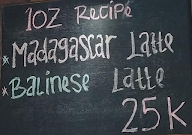 1oz Recipé
* Madagascar Latte
* Balinese Latte
25K